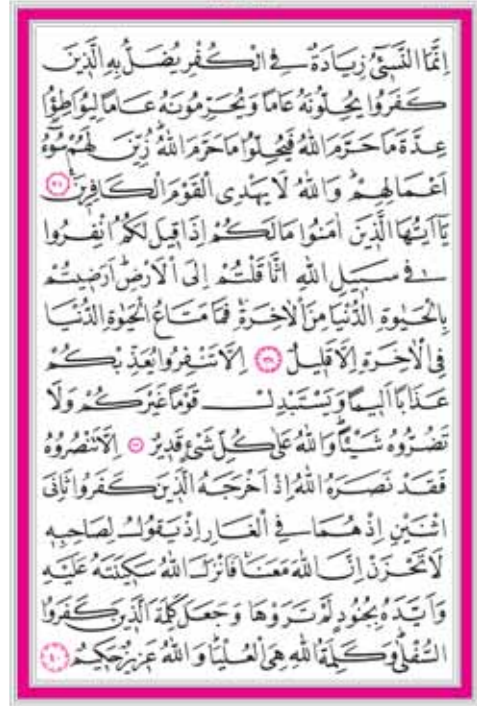 اِنَّمَا النَّسٖٓيءُ زِيَادَةٌ فِي الْكُفْرِ يُضَلُّ بِهِ الَّذٖينَ
كَفَرُوا يُحِلُّونَهُ عَامًا وَيُحَرِّمُونَهُ عَامًا لِيُوَاطِؤُا
عِدَّةَ مَا حَرَّمَ اللّٰهُ فَيُحِلُّوا مَا حَرَّمَ اللّٰهُ زُيِّنَ لَهُمْ سُٓوءُ
اَعْمَالِهِمْ وَاللّٰهُ لَا يَهْدِي الْقَوْمَ الْكَافِرٖينَ ﴿٣٧﴾
يَٓا اَيُّهَا الَّذٖينَ اٰمَنُوا مَا لَكُمْ اِذَا قٖيلَ لَكُمُ انْفِرُوا
فٖي سَبٖيلِ اللّٰهِ اثَّاقَلْتُمْ اِلَى الْاَرْضِ اَرَضٖيتُمْ
بِالْحَيٰوةِ الدُّنْيَا مِنَ الْاٰخِرَةِ فَمَا مَتَاعُ الْحَيٰوةِ الدُّنْيَا
فِي الْاٰخِرَةِ اِلَّا قَلٖيلٌ ﴿٣٨﴾ اِلَّا تَنْفِرُوا يُعَذِّبْكُمْ
عَذَابًا اَلٖيمًا وَيَسْتَبْدِلْ قَوْمًا غَيْرَكُمْ وَلَا
تَضُرُّوهُ شَيْـًٔا وَاللّٰهُ عَلٰى كُلِّ شَيْءٍ قَدٖيرٌ ﴿٣٩﴾ اِلَّا تَنْصُرُوهُ
فَقَدْ نَصَرَهُ اللّٰهُ اِذْ اَخْرَجَهُ الَّذٖينَ كَفَرُوا ثَانِيَ
اثْنَيْنِ اِذْ هُمَا فِي الْغَارِ اِذْ يَقُولُ لِصَاحِبِهٖ
لَا تَحْزَنْ اِنَّ اللّٰهَ مَعَنَا فَاَنْزَلَ اللّٰهُ سَكٖينَتَهُ عَلَيْهِ
وَاَيَّدَهُ بِجُنُودٍ لَمْ تَرَوْهَا وَجَعَلَ كَلِمَةَ الَّذٖينَ كَفَرُوا
السُّفْلٰى وَكَلِمَةُ اللّٰهِ هِيَ الْعُلْيَا وَاللّٰهُ عَزٖيزٌ حَكٖيمٌ ﴿٤٠﴾